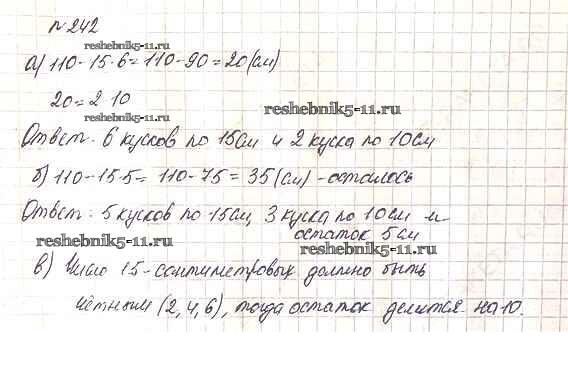 №242
reshebnik5-11.ru
а) 110-15·6=110-90=20(см)
20=2·10
reshebnik5-11.ru
reshebnik5-11.ru
Ответ: 6 кусков по 15см и 2 куска по 10см
б) 110-15·5= 110-75=35(см)-осталось
Ответ: 5 кусков по 15см, 3 куска по 10см и
остаток 5см
reshebnik5-11.ru
reshebnik5-11.ru
в) Число 15-сантиметровых должно быть
чётным (2,4,6), тогда остаток делится на 10.